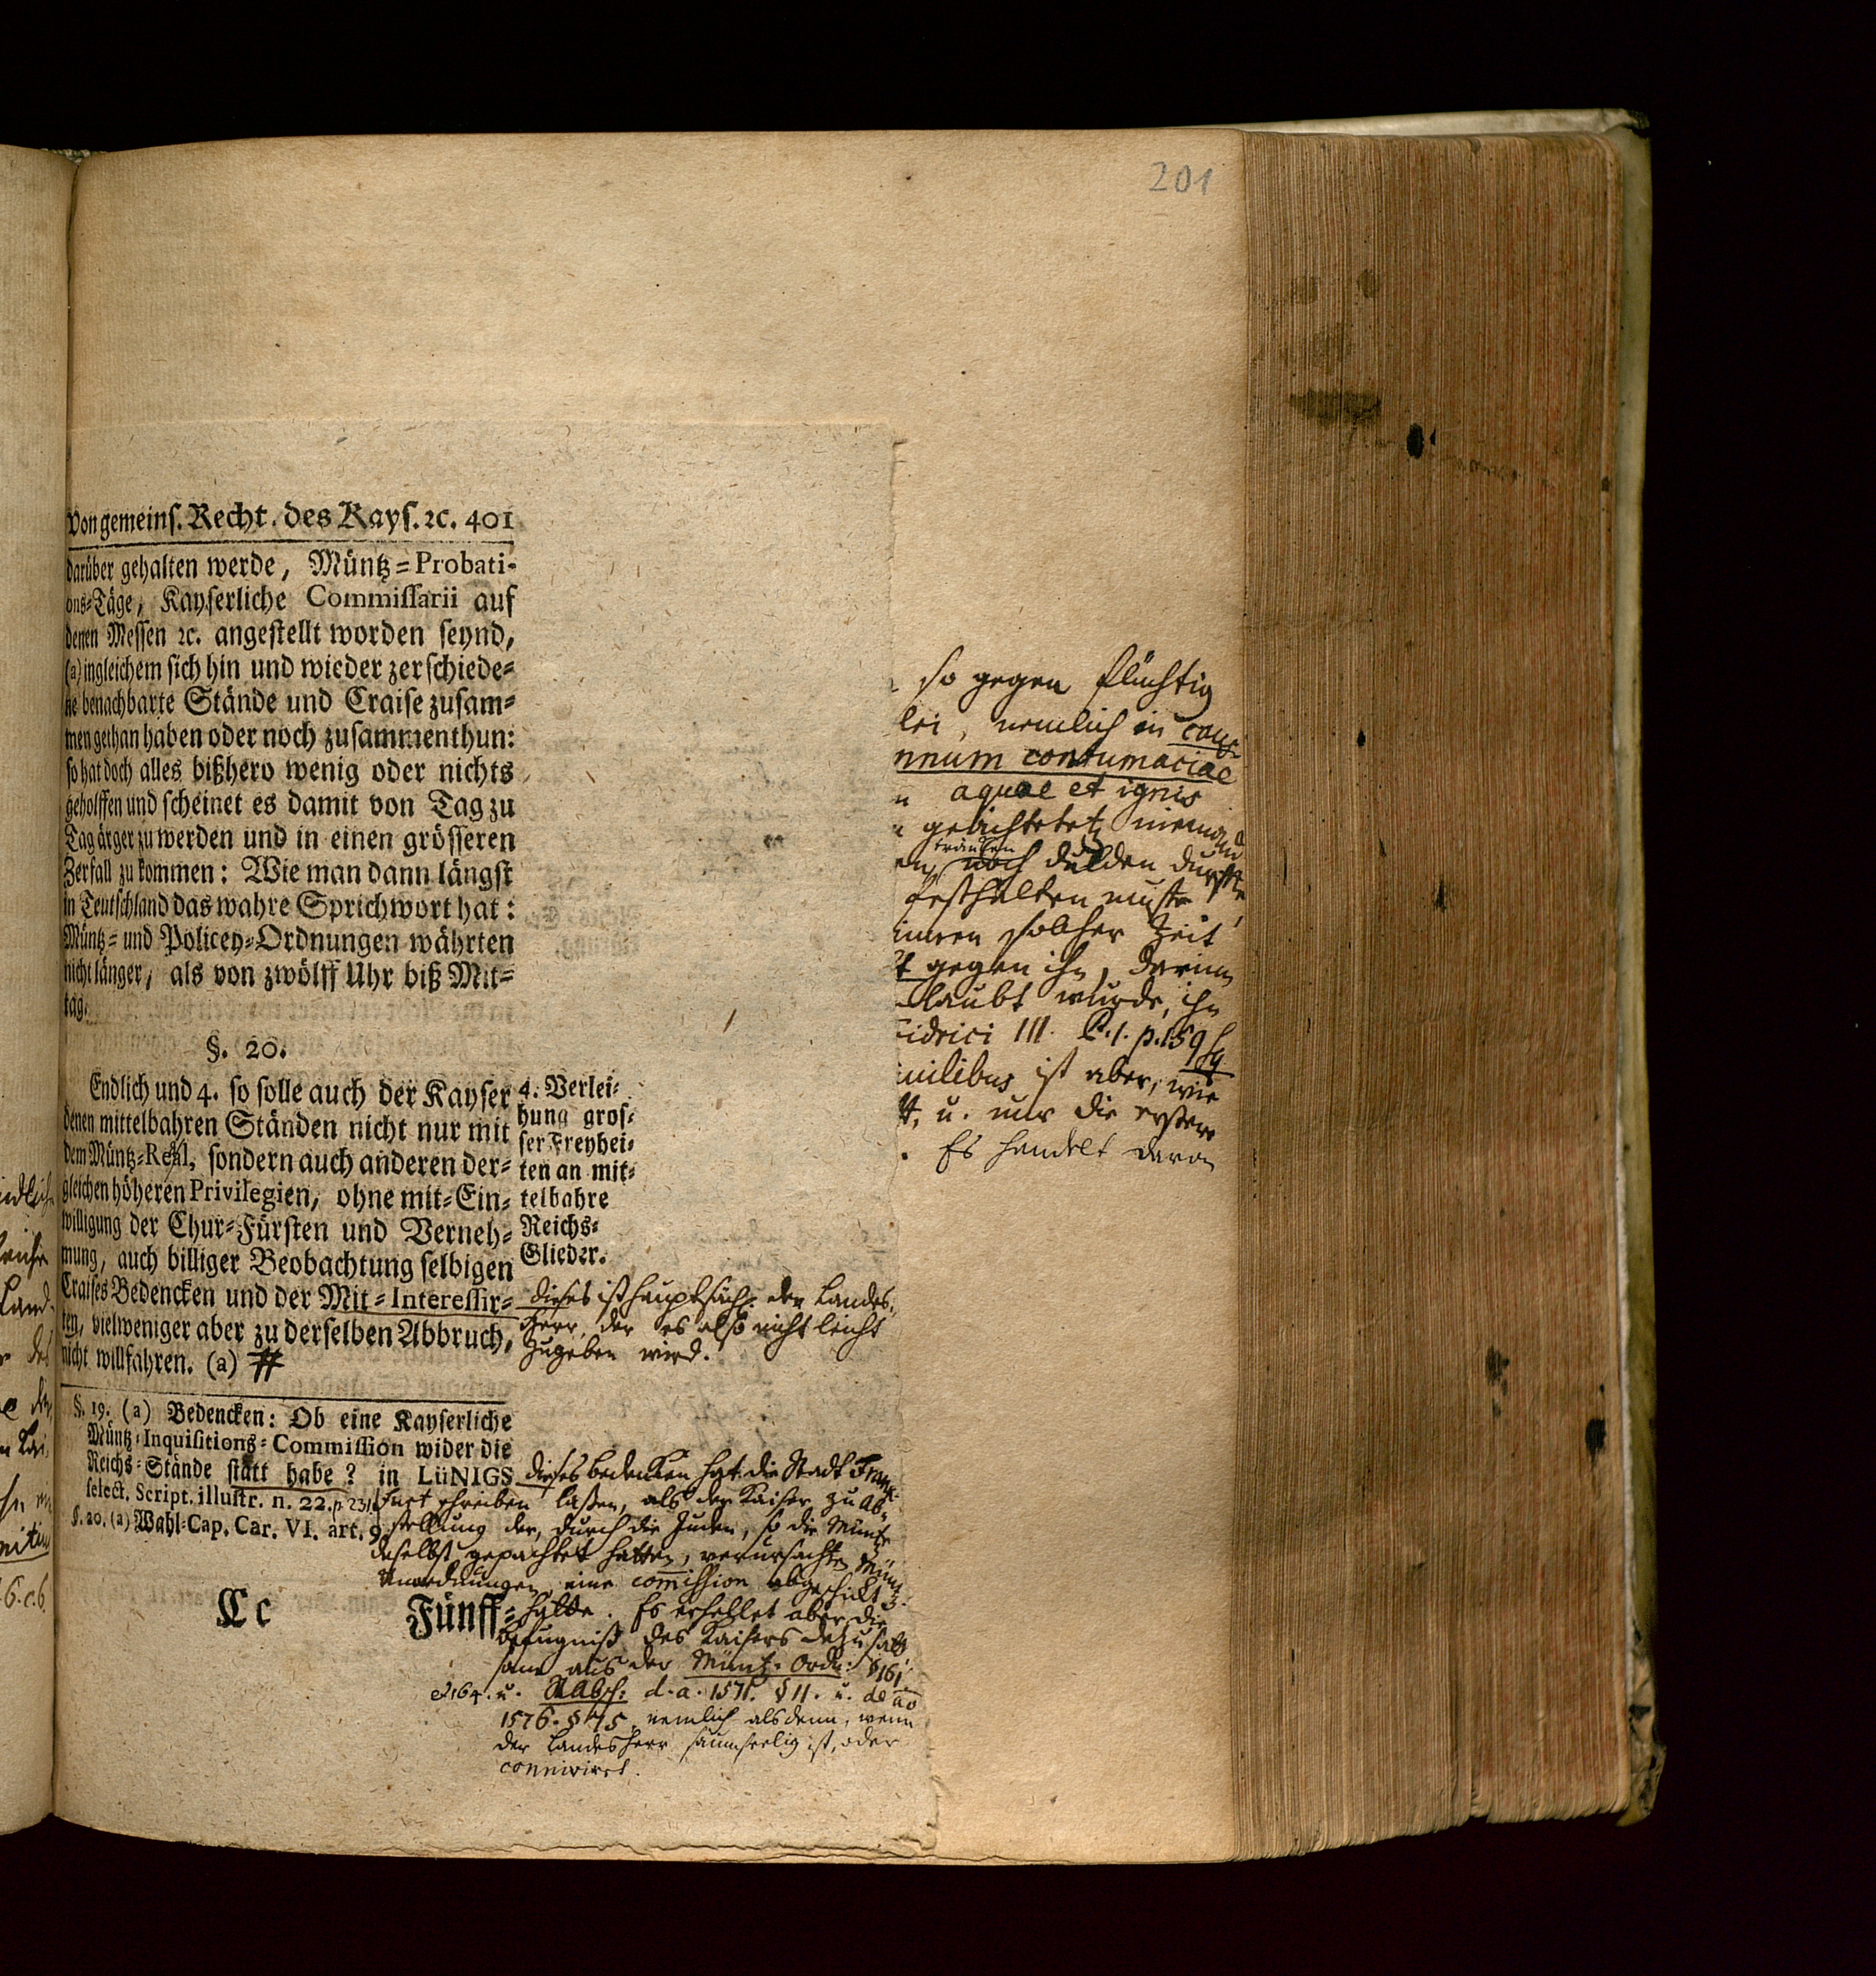 201
Von gemeins. Recht. des Kays. ꝛc. 401
darüber gehalten werde, Müntz=Probati-
ons=Täge, Kayserliche Commissarii auf
denen Messen ꝛc. angestellt worden seynd,
(a) ingleichem sich hin und wieder zerschiede=
ne benachbarte Stände und Craise zusam=
men gethan haben oder noch zusammenthun:
so hat doch alles bißhero wenig oder nichts
geholffen und scheinet es damit von Tag zu
Tag ärger zu werden und in einen grösseren
Zerfall zu kommen: Wie man dann längst
in Teutschland das wahre Sprichwort hat:
Müntz= und Policey=Ordnungen währten
nicht länger, als von zwölff Uhr biß Mit=
tag.
§. 20.
Endlich und 4. so solle auch der Kayser
denen mittelbahren Ständen nicht nur mit
dem Müntz=Regal, sondern auch anderen der=
gleichen höheren Privilegien, ohne mit=Ein=
willigung der Chur=Fürsten und Verneh=
mung, auch billiger Beobachtung selbigen
Craises Bedencken und der Mit=Interessir=
ten, vielweniger aber zu derselben Abbruch,
nicht willfahren. (a) #
4. Verlei=
hung gros=
ser Freyhei=
ten an mit=
telbahre
Reichs=
Glieder.
dieses ist hauptsächl. der Landes=
Herr, der es also nicht leicht
zugeben wird.
§. 19. (a) Bedencken: Ob eine Kayserliche
Müntz=Inquisitions=Commission wider die
Reichs=Stände statt habe? in LüNIGS
select. Script. illustr. n. 22. p. 231.
§. 20. (a) Wahl=Cap. Car. VI. art. 9.
dieses bedencken hat die Stadt Franck=
furt schreiben laßen, als der Kaiser zu Ab=
stellung der, durch die Juden, so die Müntze
daselbst gepachtet hatten, verursachten Müntz=
Unordnungen eine commission abgeschickt
hatte. Es erhellet aber die
Befugniß des Kaisers dazu satt
sam aus der Müntz-Ordn: §161.
et 164. u. RAbsch: d. a. 1571. §11. u. de ao
1576. §75. nemlich alsdenn, wenn
der Landesherr saumseelig ist, oder
connivirt.
Cc
Fünff=
so gegen flüchtig
lei, nemlich in
nnum contumaciae
n aquae et ignis
geächtetet niemand
trauten
noch dulden durffte
festhalten muste
solcher Zeit
gegen ihn, darinn
laubt wurde, ihn
idrici III. P. 1. p. 159 sq
uilibus ist aber, wie
tt, u. nur die erstere
. Es handelt davon